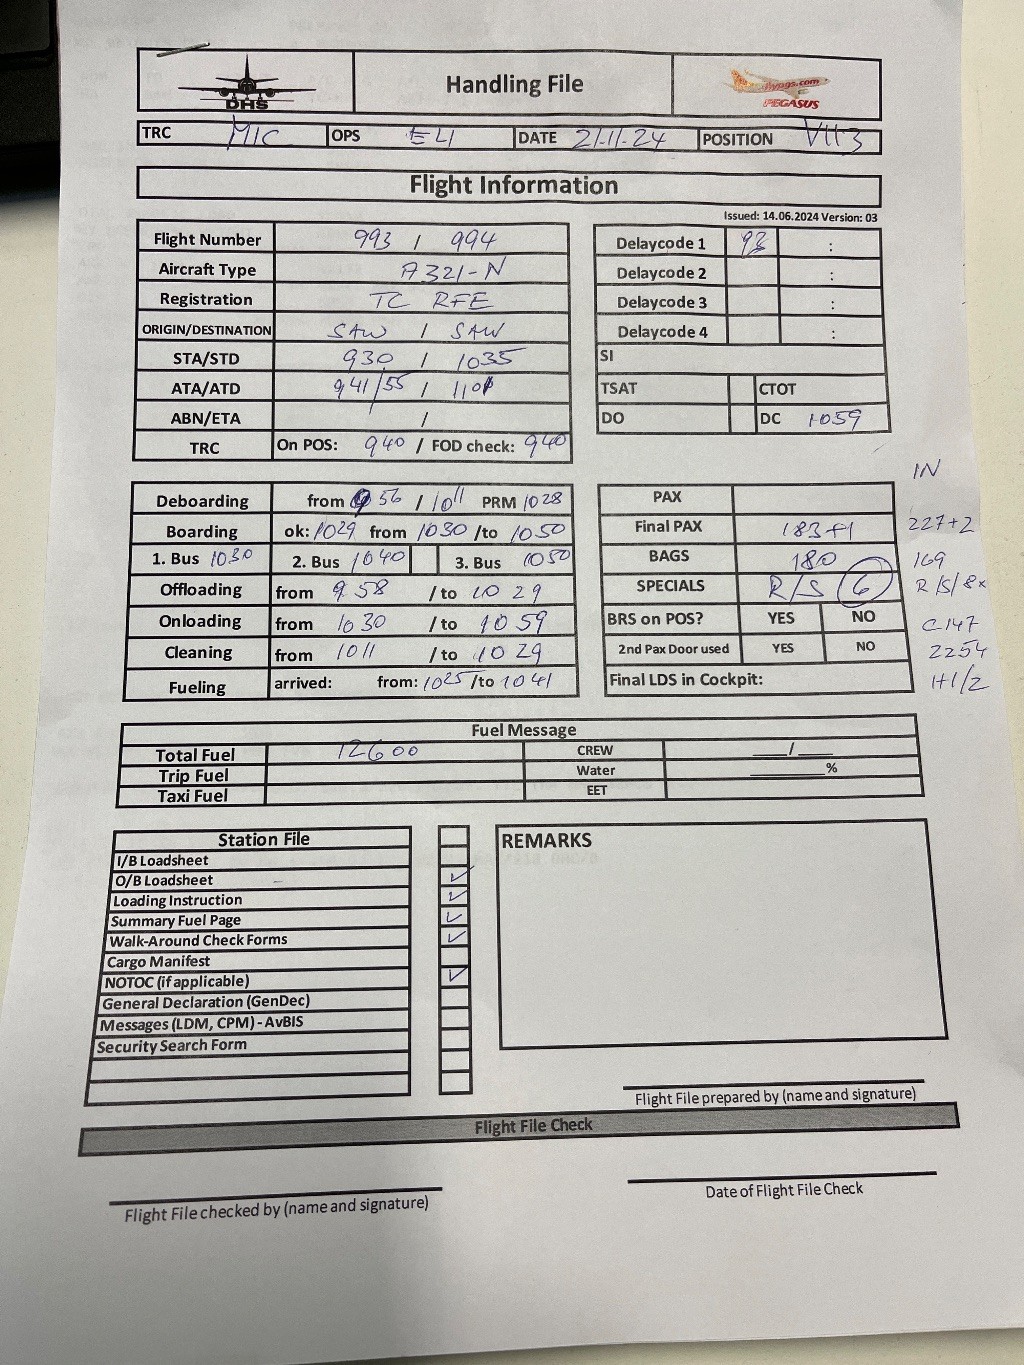 DHS
Handling File
flypgs.com
PEGASUS
TRC MIC OPS ELI DATE 21.11.24 POSITION V113
Flight Information
Issued: 14.06.2024 Version: 03
Flight Number 993 / 994
Aircraft Type A321-N
Registration TC RFE
ORIGIN/DESTINATION SAW / SAW
STA/STD 930 / 1035
ATA/ATD 941/55 / 1101
ABN/ETA /
TRC On POS: 940 / FOD check: 940
Delaycode 1 93 :
Delaycode 2 :
Delaycode 3 :
Delaycode 4 :
SI
TSAT CTOT
DO DC 1059
Deboarding from 956 / 1011 PRM 1028
Boarding ok: 1029 from 1030 /to 1050
1. Bus 1030 2. Bus 1040 3. Bus 1050
Offloading from 958 /to 1029
Onloading from 1030 /to 1059
Cleaning from 1011 /to 1029
Fueling arrived: from: 1025 /to 1041
IN
PAX
Final PAX 183+1 227+2
BAGS 180 169
SPECIALS R/S (6) R/S/8x
BRS on POS? YES NO C147
2nd Pax Door used YES NO 2254
Final LDS in Cockpit: H1/2
Fuel Message
Total Fuel 12600 CREW ___/___
Trip Fuel Water ______%
Taxi Fuel EET
Station File
I/B Loadsheet
O/B Loadsheet ✓
Loading Instruction ✓
Summary Fuel Page ✓
Walk-Around Check Forms ✓
Cargo Manifest
NOTOC (if applicable) ✓
General Declaration (GenDec)
Messages (LDM, CPM) - AvBIS
Security Search Form
REMARKS
Flight File prepared by (name and signature)
Flight File Check
Flight File checked by (name and signature)
Date of Flight File Check